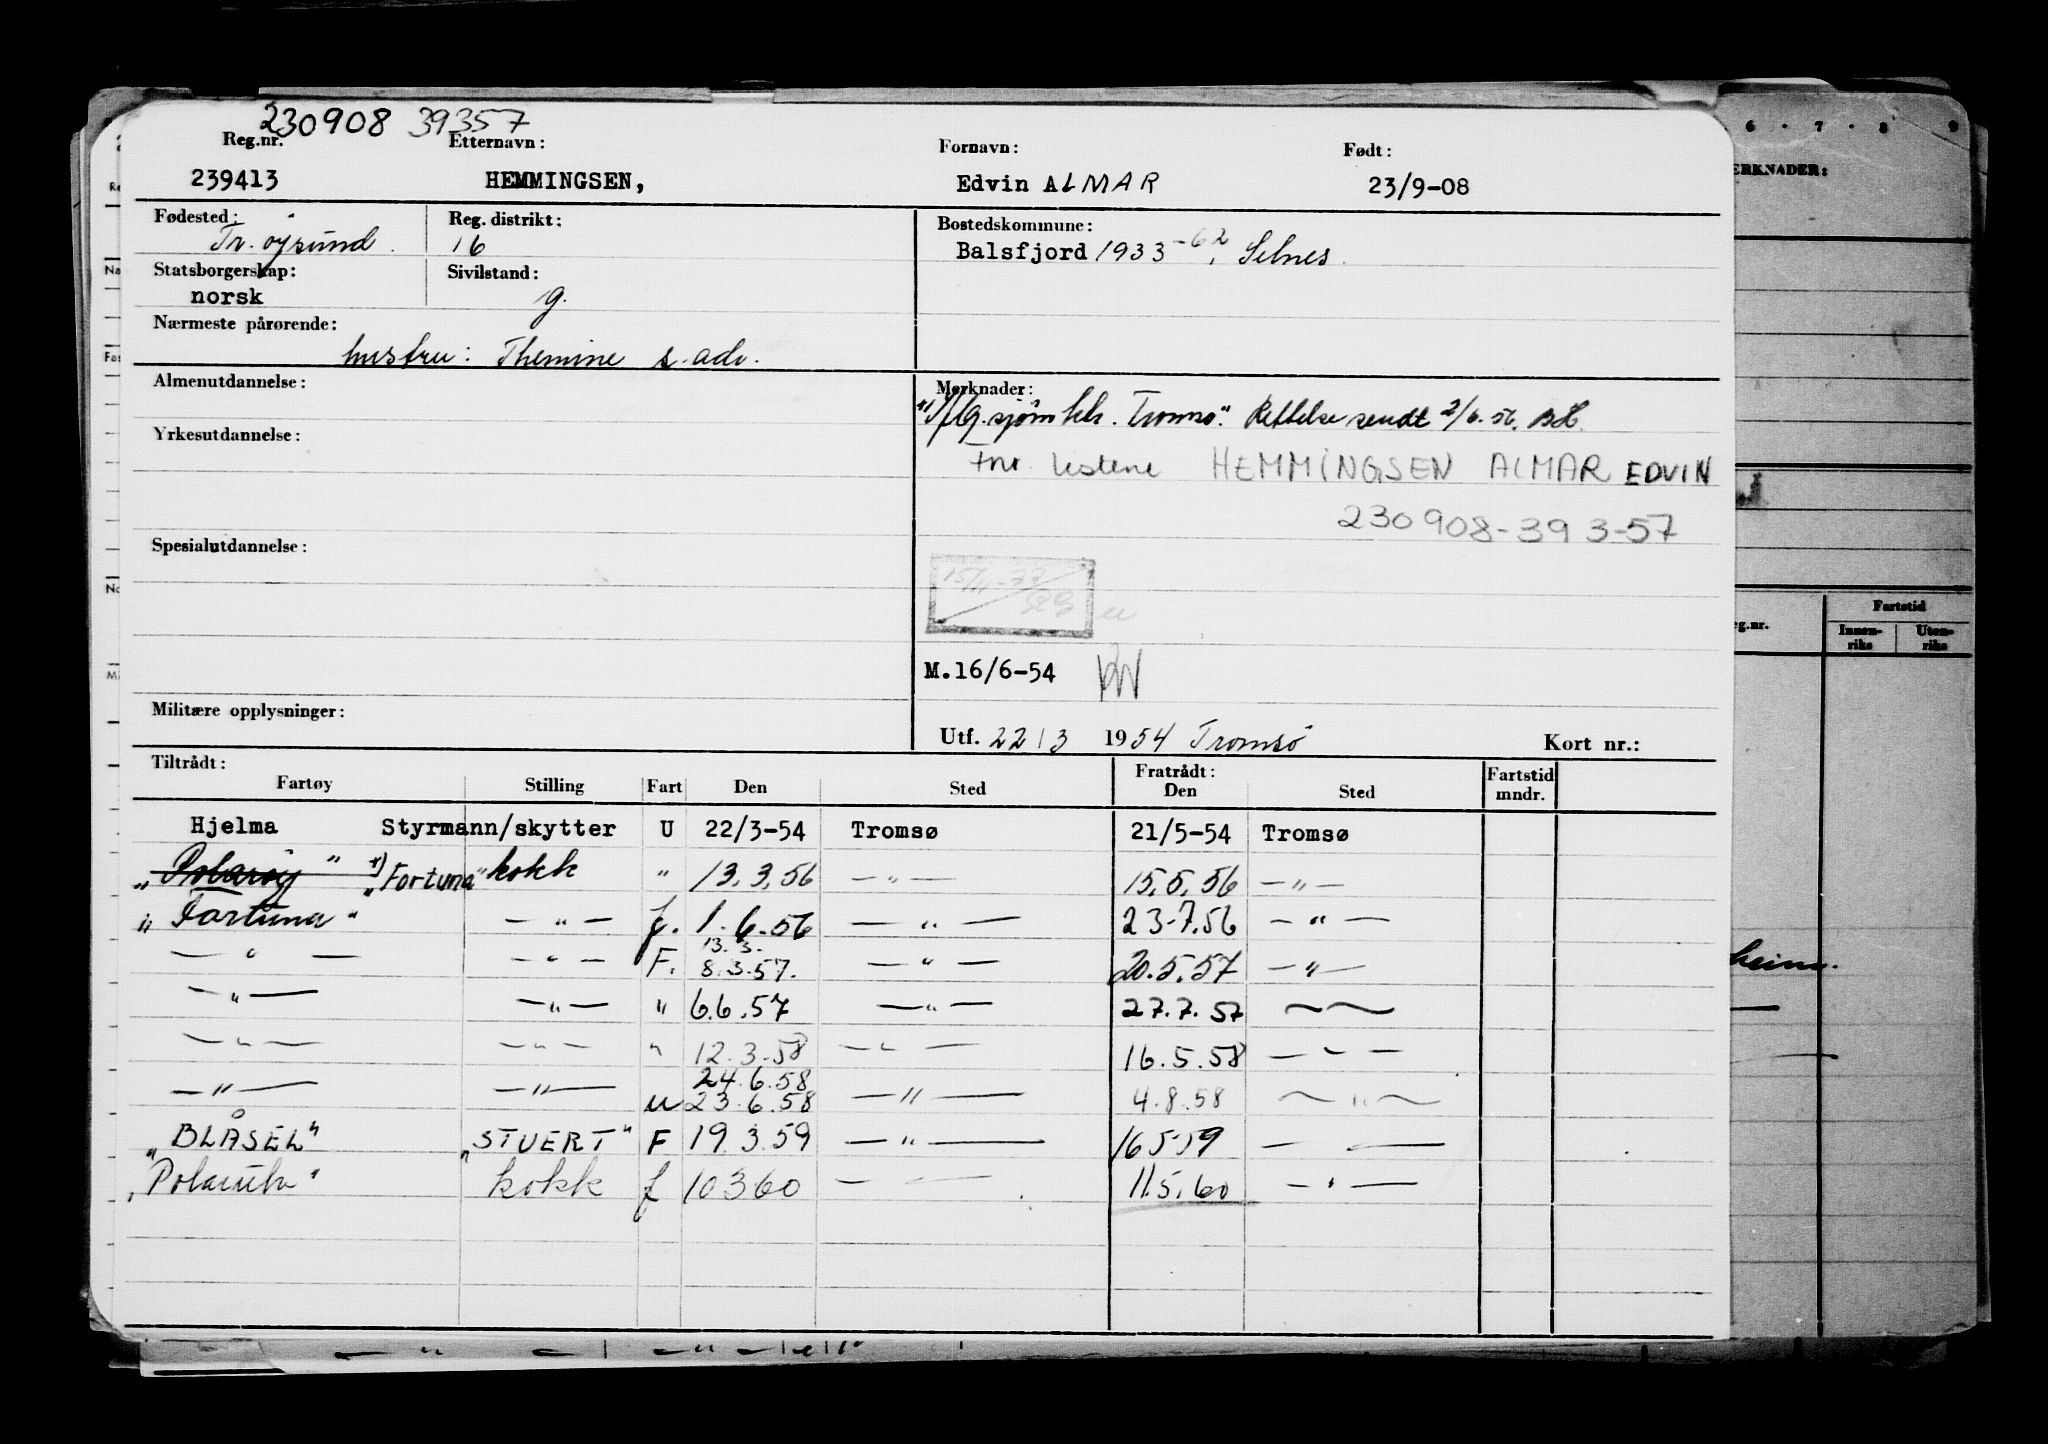 230908 39357
Reg.nr. Etternavn: Fornavn: Født:
239413 HEMMINGSEN, Edvin ALMAR 23/9-08
Fødested: Reg. distrikt: Bostedskommune:
Tr. øysund. 16 Balsfjord 1933-62, Selnes.
Statsborgerskap: Sivilstand:
norsk g.
Nærmeste pårørende:
hustru: Themine s. adr.
Almenutdannelse: Merknader:
sjøm. ktr. Tromsø". Rettelse sendt 2/6.56.
Yrkesutdannelse:
Fnr. listene HEMMINGSEN ALMAR EDVIN
230908-393-57
Spesialutdannelse:
15/11-77
M.16/6-54
Militære opplysninger:
Utf. 22/3 1954 Tromsø Kort nr.:
Tiltrådt: Fratrådt: Fartstid
Fartøy Stilling Fart Den Sted Den Sted mndr.
Hjelma Styrmann/skytter U 22/3-54 Tromsø 21/5-54 Tromsø
"Polarøy" *) "Fortuna" kokk " 13.3.56 — " — 15.5.56 — " —
"Fortuna" — " — f. 1.6.56 — " — 23.7.56 — " —
13.3.
— " — — " — F. 8.3.57. — " — 20.5.57 — " —
— " — — " — " 6.6.57 — " — 27.7.57 — —
— " — — " — " 12.3.58 — " — 16.5.58 — " —
24.6.58
— " — — " — u 23.6.58 — " — 4.8.58 — " —
"BLÅSEL" "STUERT" F 19.3.59 — " — 16559 — —
kokk f 10360 — — 11.5.60 — " —
6 . 7 . 8 . 9
ERKNADER:
Fartstid
eg.nr. Innen-riks Uten-riks
heim.